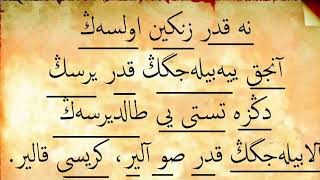 نه قدر زنكین اولسه‌ڭ
آنجق ییه‌بیله‌جگڭ قدر یرسڭ
دڭزه تستی یی طالدیرسه‌ڭ
آلابیله‌جگڭ قدر صو آلیر، كریسی قالیر.